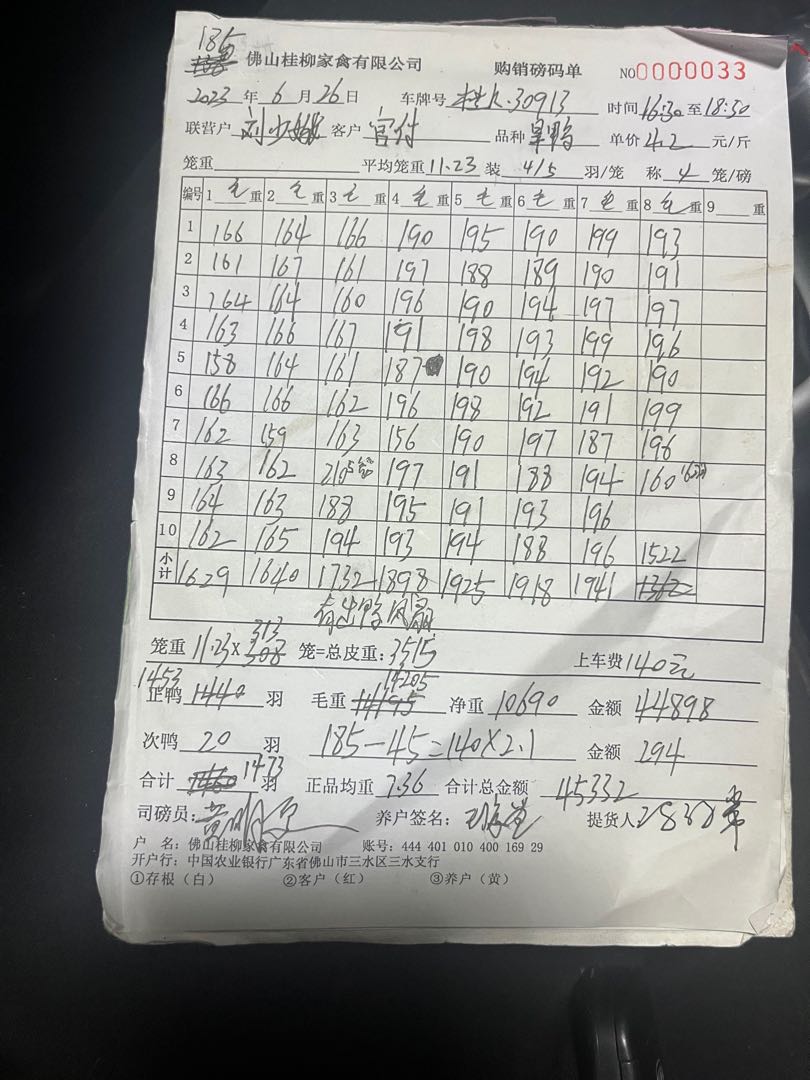 185
佛山桂柳家禽有限公司 购销磅码单 NO0000033
2023 年 6 月 26 日 车牌号 桂K.30913 时间 16:30 至 18:30
联营户 刘少 客户 官付 品种 旱鸭 单价 4.2 元/斤
笼重 平均笼重 11.23 装 4/5 羽/笼 称 4 笼/磅
编号 1 毛 重 2 毛 重 3 毛 重 4 毛 重 5 毛 重 6 毛 重 7 毛 重 8 毛 重 9 重
1 166 164 166 190 195 190 199 193
2 161 167 161 197 188 189 190 191
3 164 164 160 196 190 194 197 197
4 163 166 167 191 198 193 199 196
5 158 164 161 187 190 194 192 190
6 166 166 162 196 198 192 191 199
7 162 159 163 156 190 197 187 196
8 163 162 210 197 191 188 194 160
9 164 163 188 195 191 193 196
10 162 165 194 193 194 188 196 1522
小计 1629 1640 1732 1898 1925 1918 1941
313
笼重 11.23× 308 笼=总皮重: 3515 上车费 140元
1453 14205
正鸭 1440 羽 毛重 14195 净重 10690 金额 44898
次鸭 20 羽 185-45=140×2.1 金额 294
合计 1460 1473 羽 正品均重 7.36 合计总金额 45332
司磅员: 黄明 养户签名: 提货人
户 名: 佛山桂柳家禽有限公司 账号: 444 401 010 400 169 29
开户行: 中国农业银行广东省佛山市三水区三水支行
①存根（白） ②客户（红） ③养户（黄）